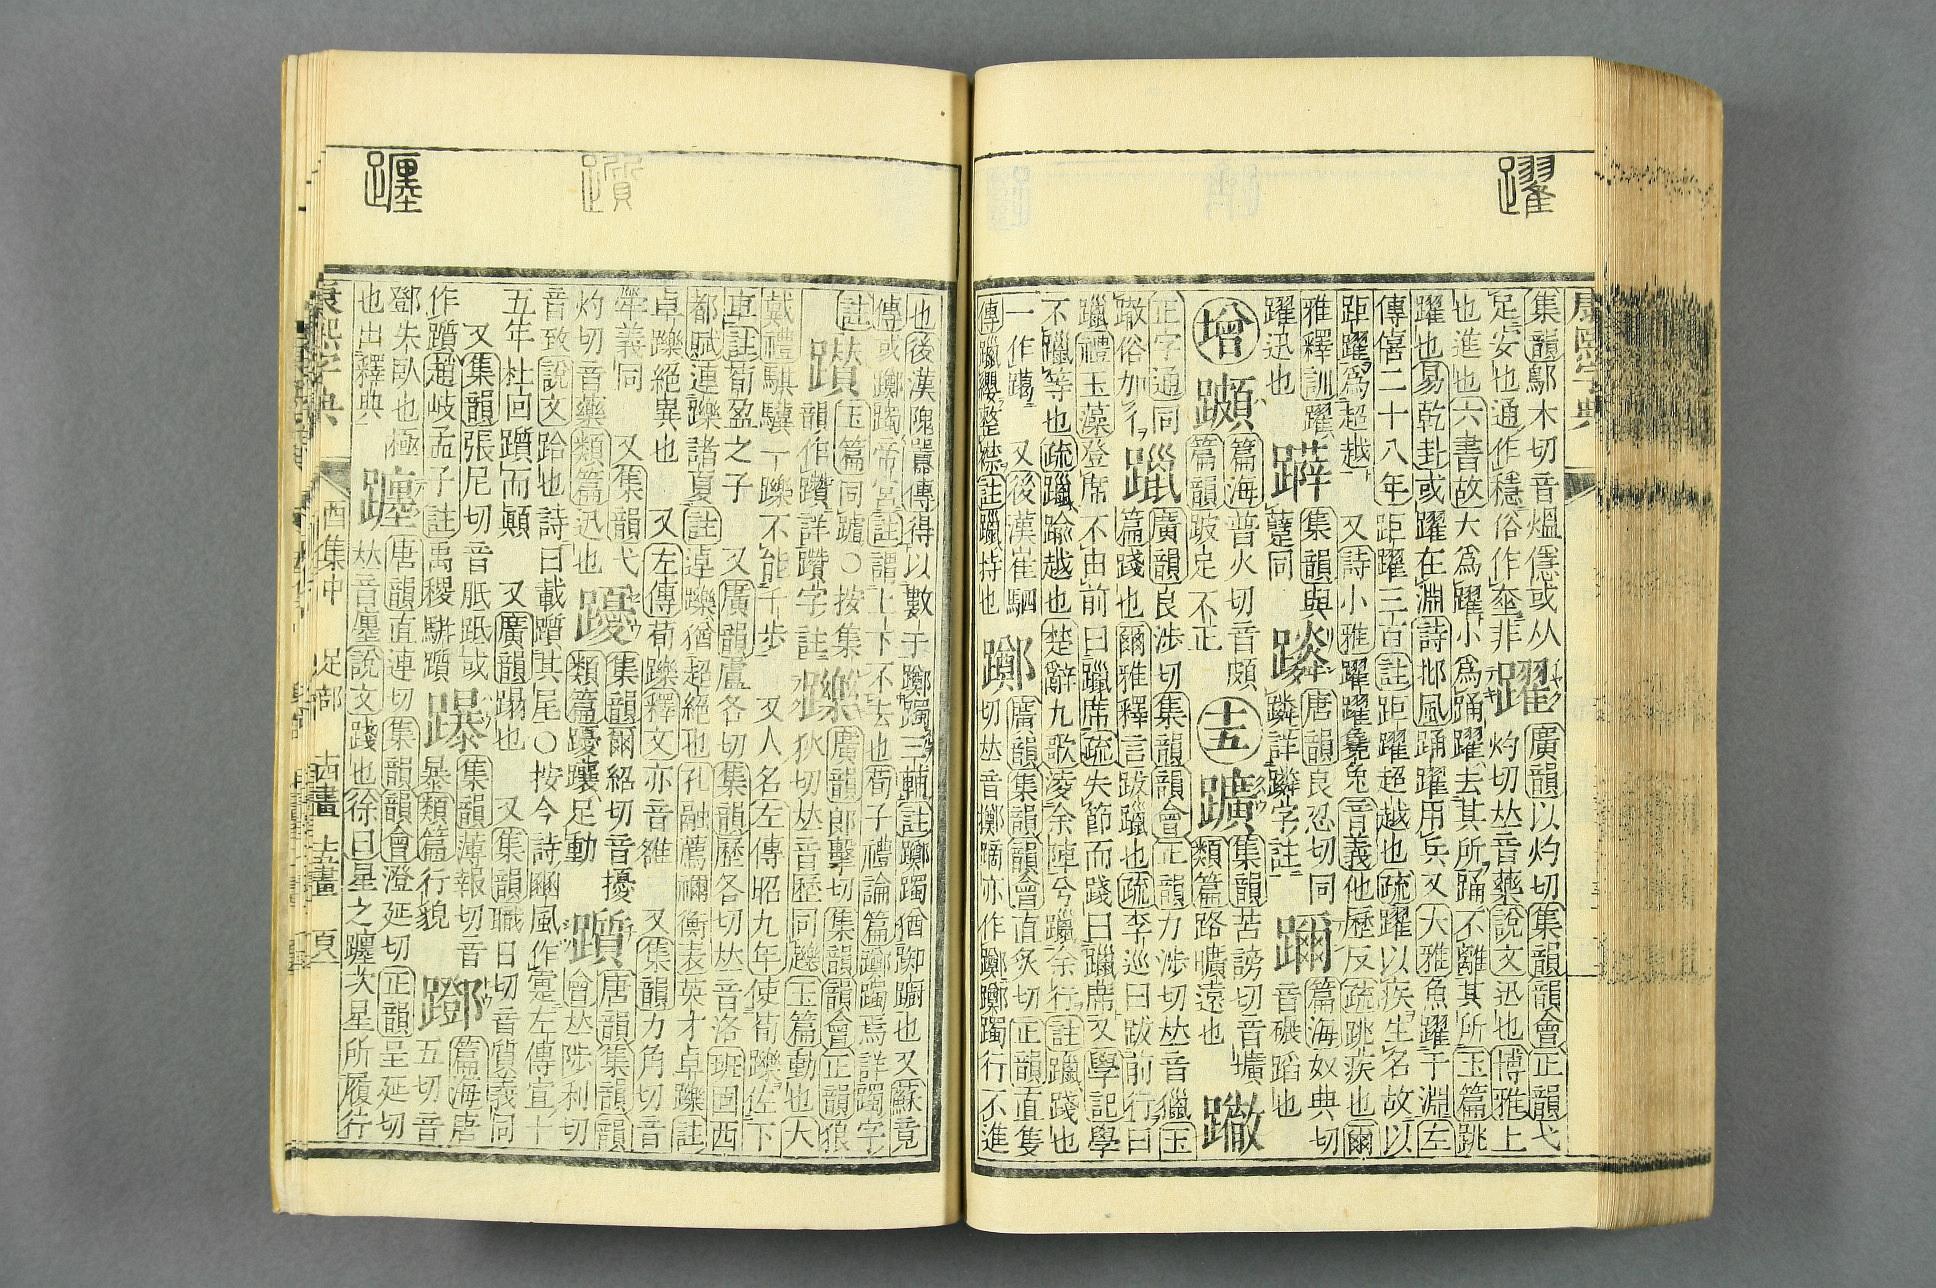 躍
集韻鄔木切音熅𨼆或从
足安也通作穩俗作㙠非
躍
廣韻以灼切集韻韻會正韻弋
灼切𠀤音藥說文迅也博雅上
也進也六書故大爲躍小爲踊躍去其所踊不離其所玉篇跳
躍也易乾卦或躍在淵詩邶風踊躍用兵又大雅魚躍于淵左
傳僖二十八年距躍三百註距躍超越也疏躍以疾生名故以
距躍爲超越 又詩小雅躍躍毚兔音義他歷反疏跳疾也爾
雅釋訓躍
躍迅也
集韻與
躠同
唐韻良忍切同
躪詳躪字註
篇海奴典切
音碾蹈也
增
篇海普火切音頗
篇韻跛足不正
十五
躌
集韻苦謗切音壙
類篇路曠遠也
正字通同
躐俗加彳
躐
廣韻良涉切集韻韻會正韻力涉切𠀤音獵玉
篇踐也爾雅釋言跋躐也疏李巡曰跋前行曰
躐禮玉藻登席不由前曰躐席疏失節而踐曰躐席又學記學
不躐等也疏躐踰越也楚辭九歌凌余陣兮躐余行註躐踐也
一作擸 又後漢崔駰
傳躐纓整襟註躐持也
躑
廣韻集韻韻會直炙切正韻直隻
切𠀤音擲蹢亦作躑躑躅行不進
躓
躔
也後漢隗囂傳得以數于躑躅三輔註躑躅猶踟躕也又蘇竟
傳或躑躅帝宮註謂上下不去也荀子禮論篇躑躅焉詳躅字
註
玉篇同䠱○按集
韻作躦詳躦字註
躒
廣韻郎擊切集韻韻會正韻狼
狄切𠀤音歷同趮玉篇動也大
戴禮騏驥一躒不能千步 又人名左傳昭九年使荀躒佐下
車註荀盈之子 又廣韻盧各切集韻歷各切𠀤音洛班固西
都賦逴躒諸夏註逴躒猶超絕也孔融薦禰衡表英才卓躒註
卓躒絕異也 又左傳荀躒釋文亦音雒 又集韻力角切音
犖義同 又集韻弋
灼切音藥類篇迅也
集韻爾紹切音擾
類篇躞躟足動
躓
唐韻集韻韻
會𠀤陟利切
音致說文跲也詩曰載躓其尾○按今詩豳風作疐左傳宣十
五年杜回躓而顚 又廣韻蹋也 又集韻職日切音質義同
 又集韻張尼切音胝跖或
作躓趙岐孟子註禹稷駢躓
𨇅
集韻薄報切音
暴類篇行貌
蹬
篇海唐
五切音
鄧失臥也極
也出釋典
躔
唐韻直連切集韻韻會澄延切正韻呈延切
𠀤音廛說文踐也徐曰星之躔次星所履行
康熙字典 酉集中 足部